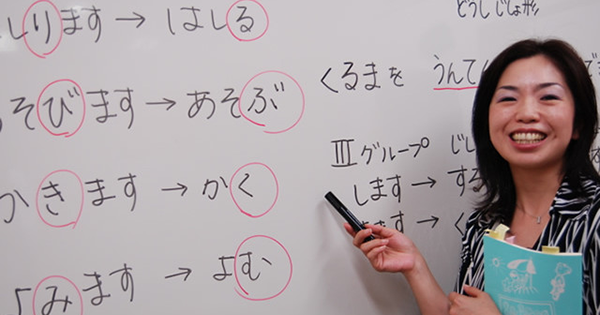 しります → はしる
そびます → あそぶ
かきます → かく
よみます → よむ
どうし じしょ形
くるまを うんて
Ⅲグループ じし
します → する
ます → く